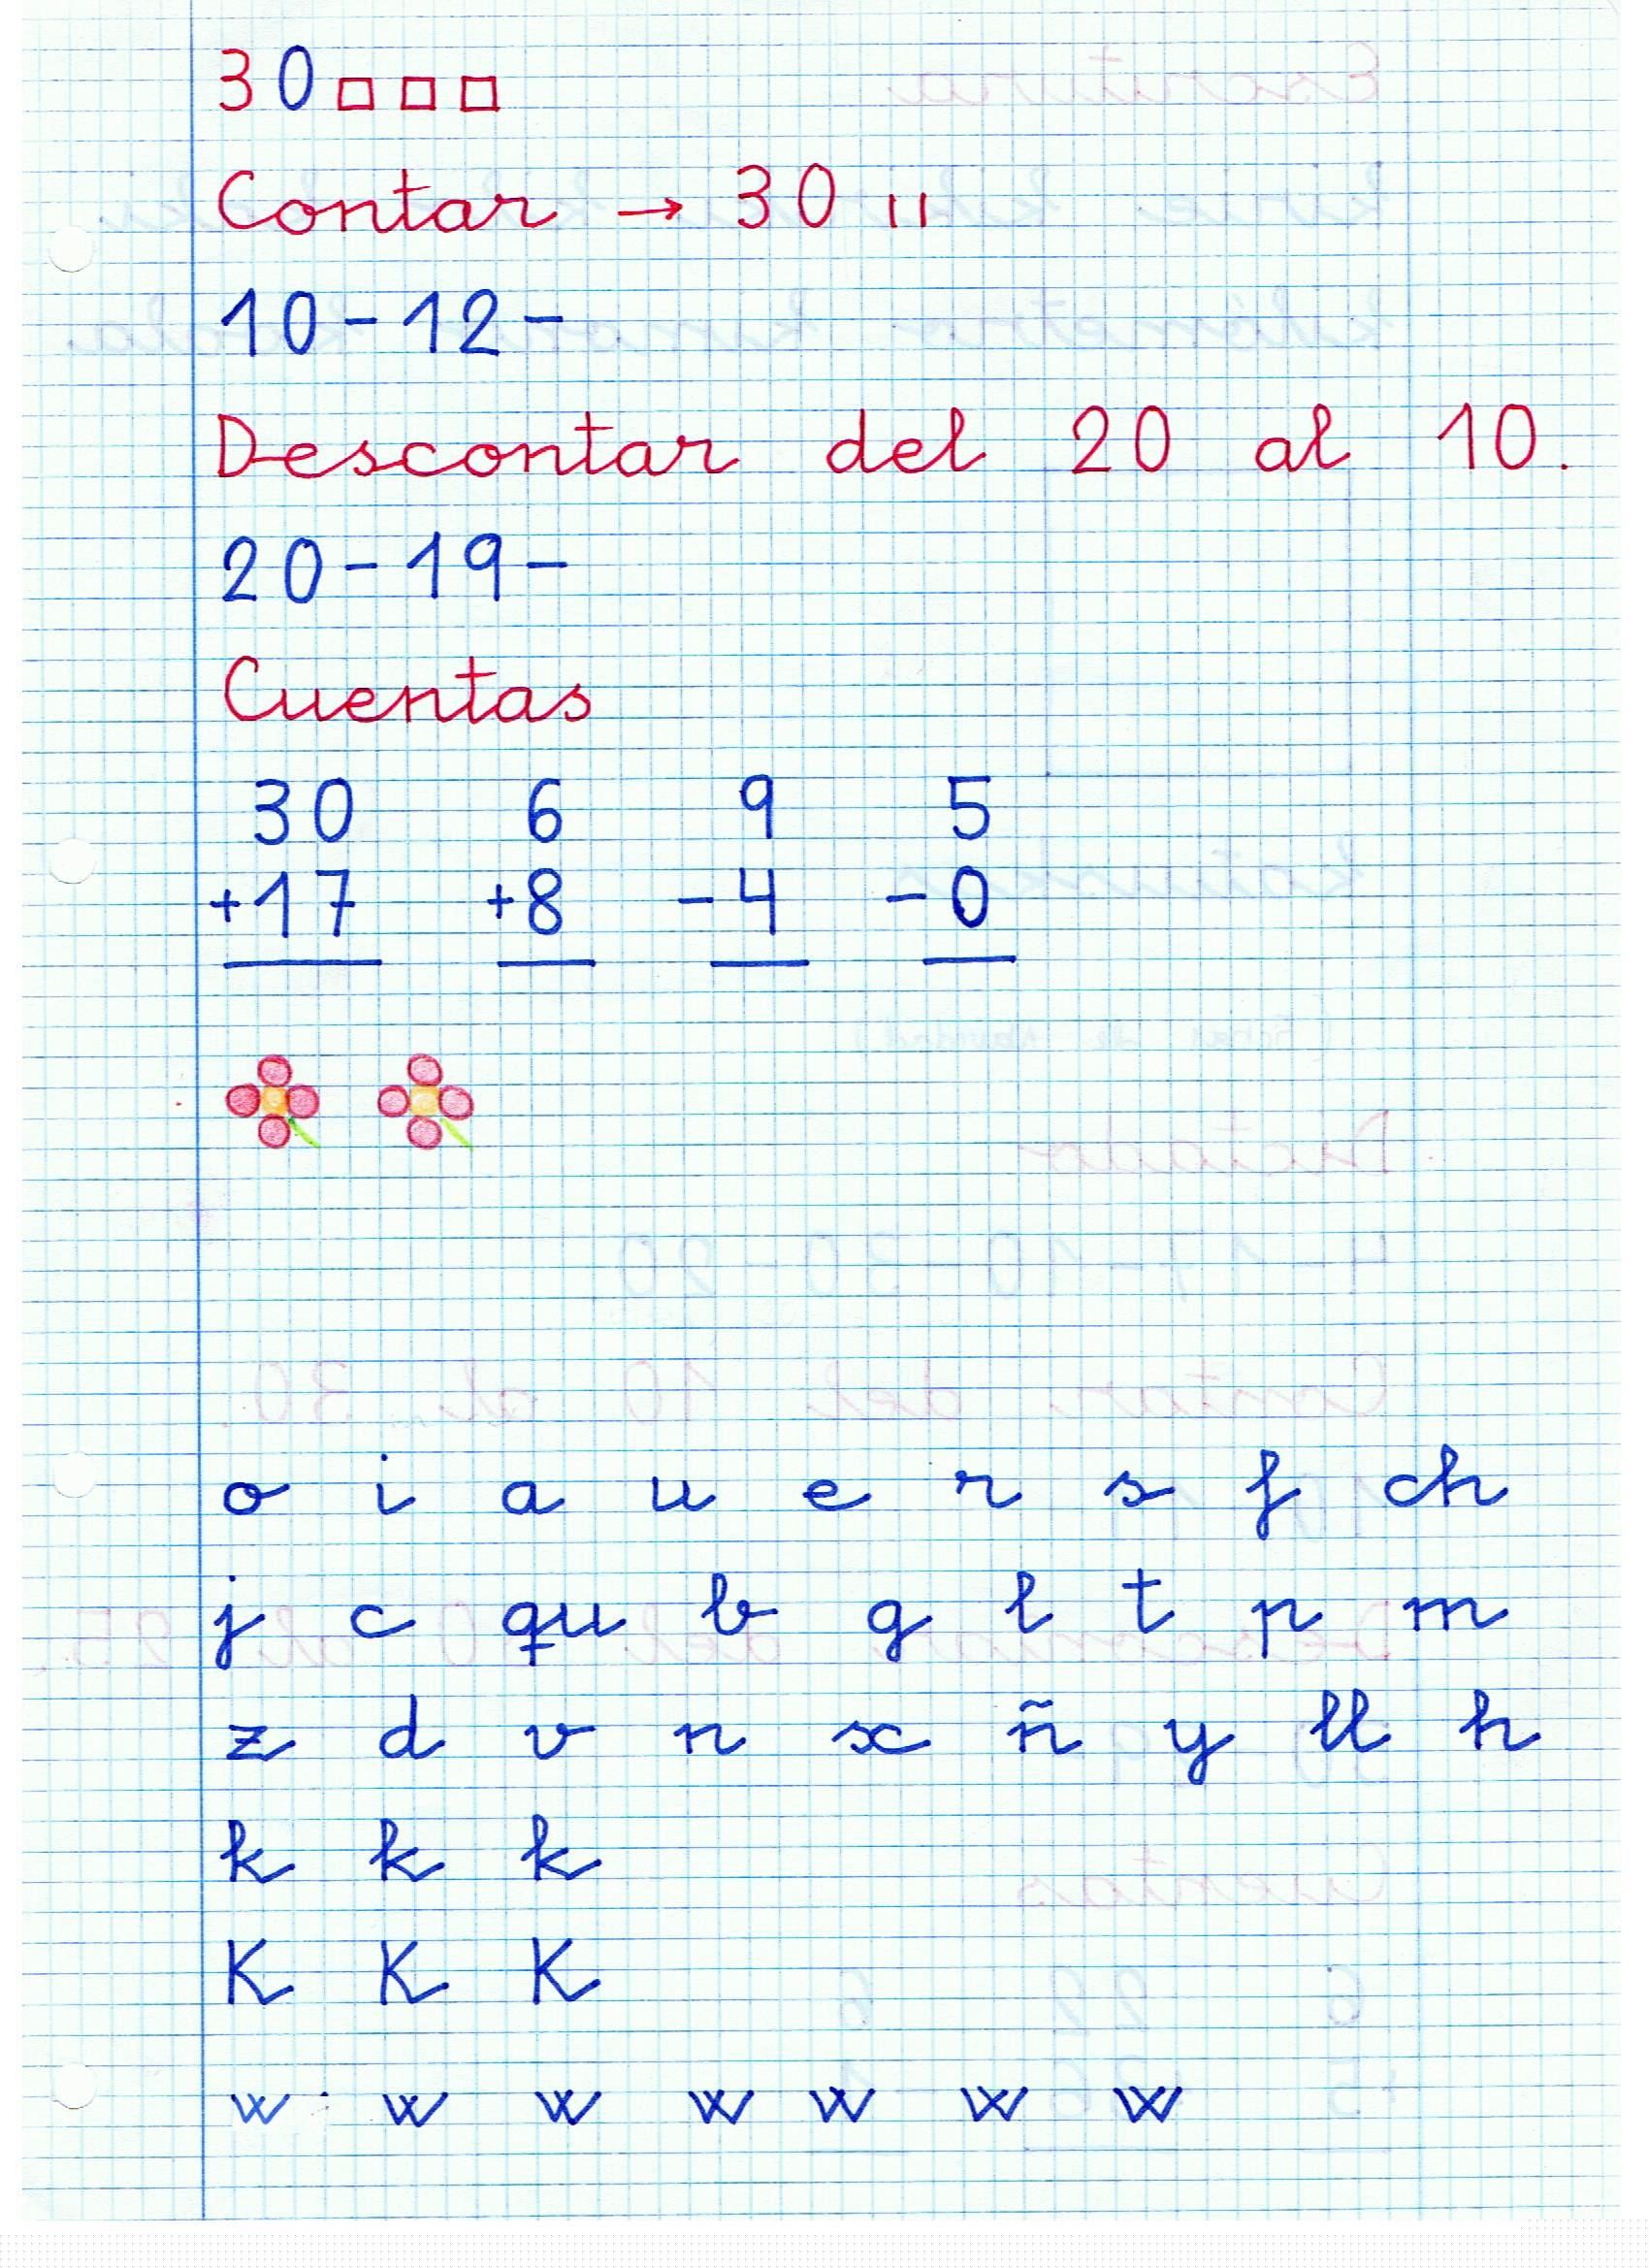 30 □ □ □
Contar → 30 ıı
10-12-
Descontar del 20 al 10.
20-19-
Cuentas
30 6 9 5
+17 +8 -4 -0
o i a u e r s f ch
j c qu b g l t p m
z d v n x ñ y ll h
k k k
K K K
w w w w w w w